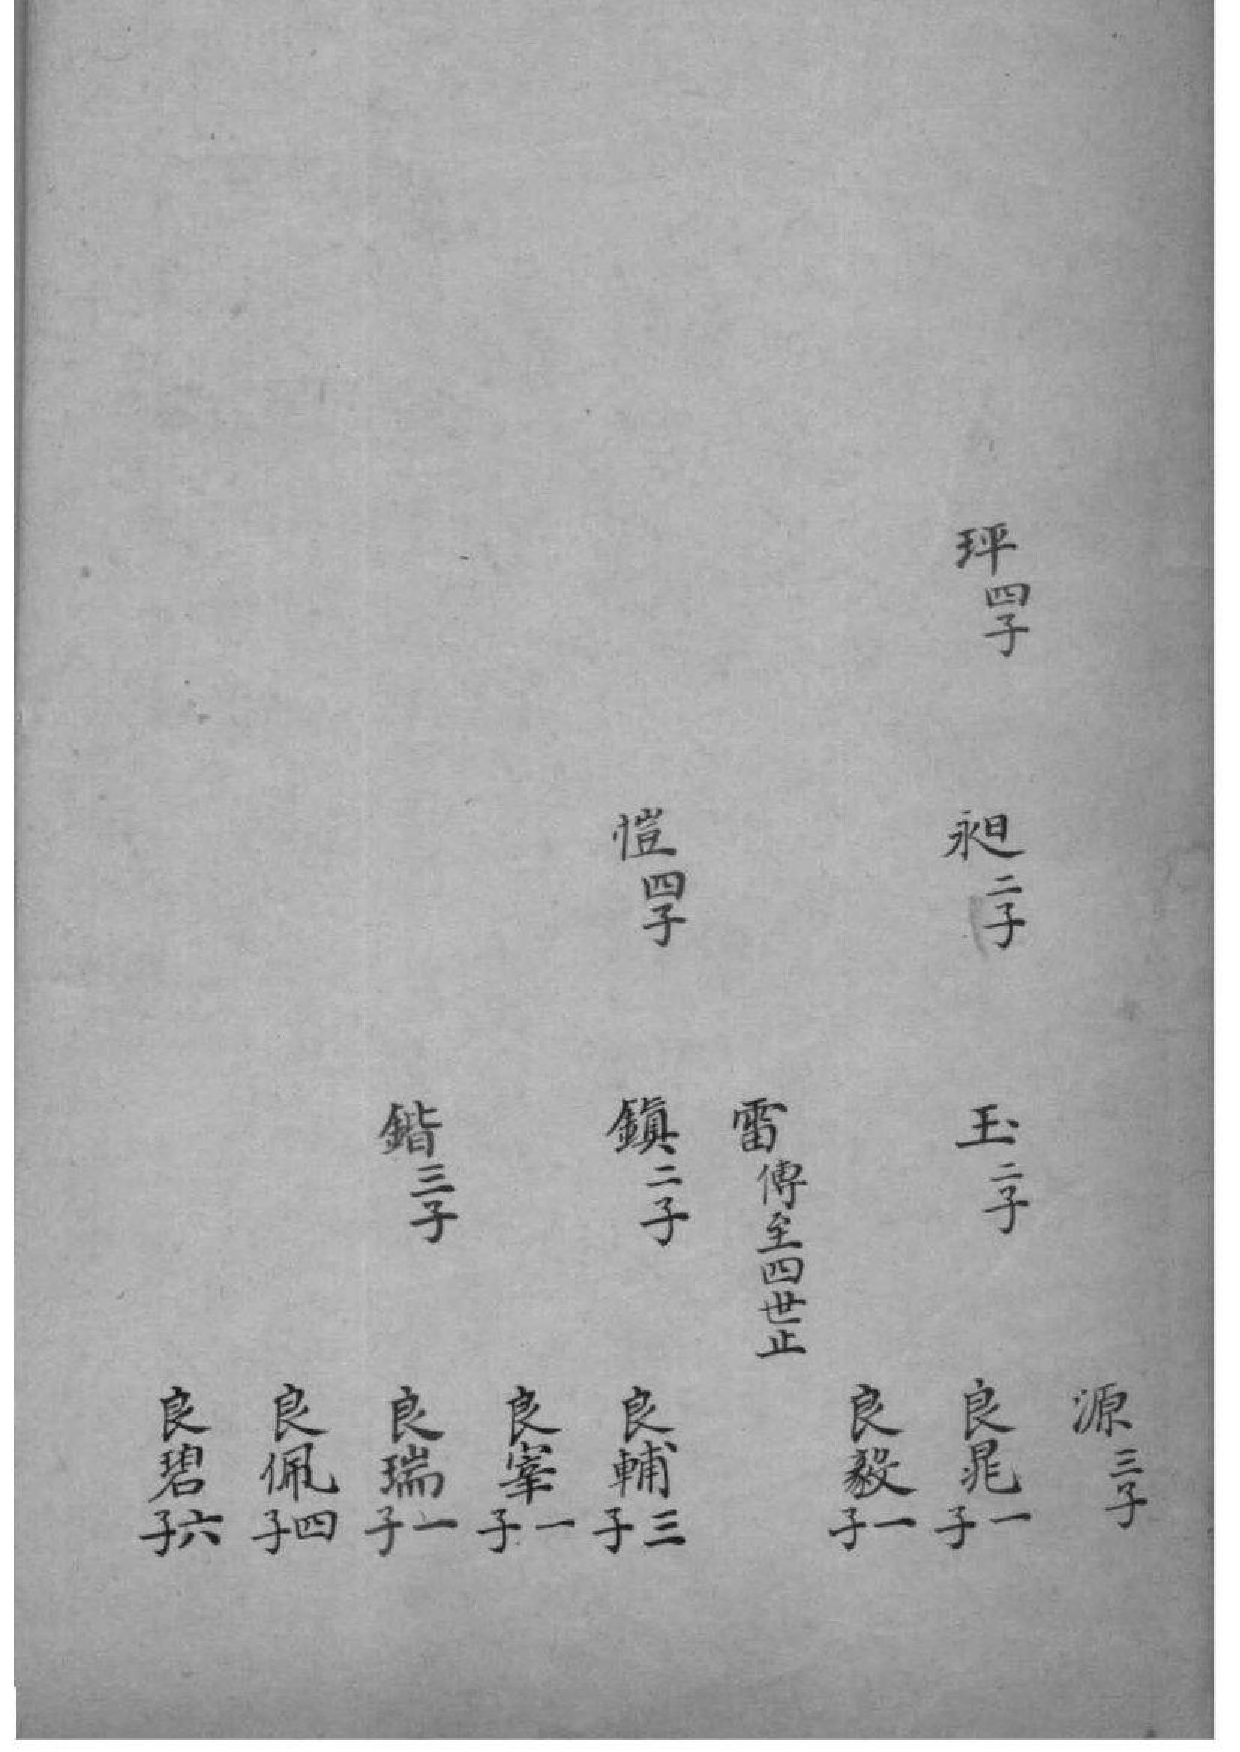 源三子
坪四子
昶二子
玉二子
良晁一子
良毅一子
雷傳至四世止
愷四子
鎮二子
良輔三子
良宰一子
鍇三子
良瑞一子
良佩四子
良碧六子